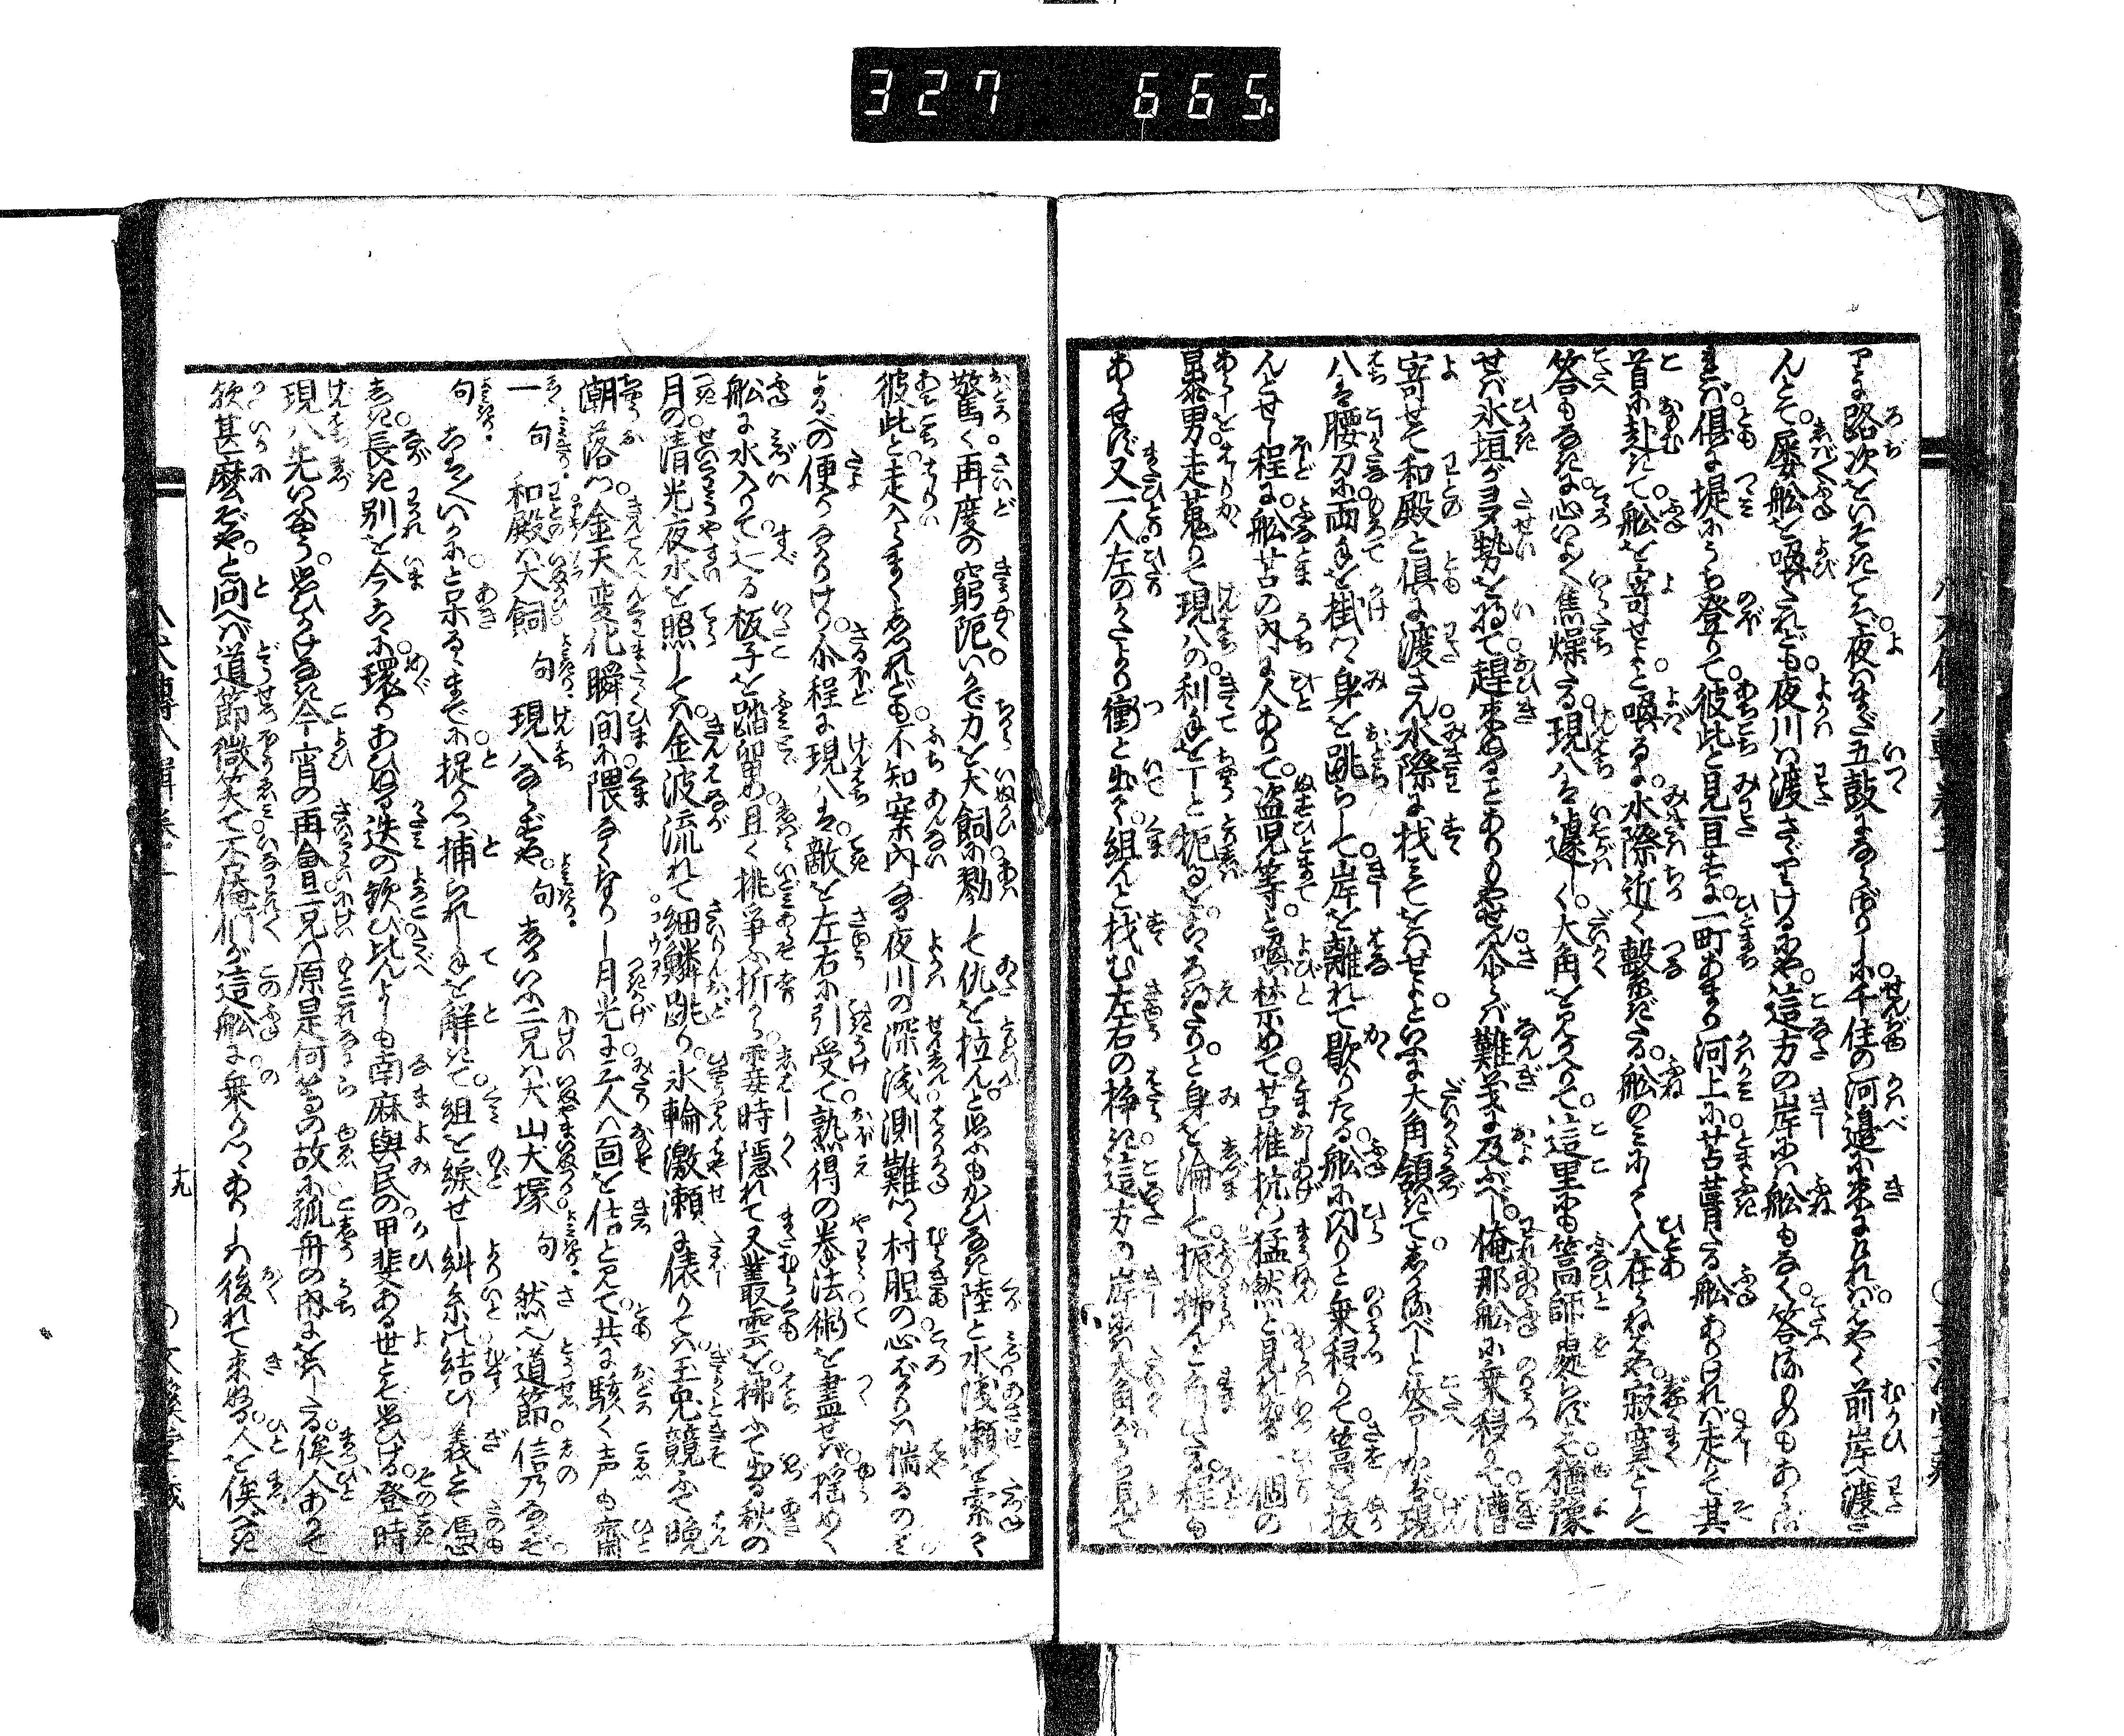 327 665
りに路次をいそぎてぞ夜はまだ五鼓にならざりしに千住の河邉に来にければはやく前岸へ渡さ
んとて屡舩を喚びしかども夜川は渡さでやありけるにや這方の岸には舩もなく答るものもあらざ
れば倶に堤にうち登りて彼此と見亘せば一町あまり河上に苫葺たる舩ありければ走りて其
首に赴きて舩を寄せよと喚るに水際近く繋ぎたる舩のみにして人在らねばや寂寞として
答もなきに心いらく焦燥たる現八は遽しく大角を見かへりて這里にも篙師處らず猶豫
せば氷垣が ヲヲ勢を将て趕来ぬることありもやせん尓らば難義に及ぶべし俺那舩に乗移りて漕
寄せて和殿と倶に渡さん水際に找みてをはせよといふに大角領きてしかるべしと答しかば現
八は腰刀に両手を掛け身を跳らして岸を離れて歇りたる舩に閃りと乗移りて篙を拔
んとせし程に舩苫の内に人ありて盗児等と喚禁めて苫推抗つ猛然と見れ出る一個の
暴男走り蒐りて現八の利手を丁と扼るをこころえたりと身を淪して振拂んと角ひたる程に
あらせず又一人左のかたより衝と出て組んと找む左右の挣ぎ這方の岸には大角がうち見て
驚く再度の窮阨いかで力を犬飼に勠して仇を拉んと思ふもかひなき陸と水浅瀬を索て
彼此と走入らまくしぬれども不知案内なる夜川の深浅測難つ村肝の心ばかりは惴るのみ
よるべの便りなかりけり尓程に現八は敵を左右に引受て熟得の拳法術を盡せば揺めく
舩に水入りて辷る板子を踏畄め且く挑争ふ折から霎時隠れて又叢雲を拂ふて出る秋の
月の清光夜水を照しては金波流れて細鱗跳り氷輪激瀬に俵りては玉兎競ふて晩
潮落つ金天変化瞬間に隈なくなりし月光に三人ハ面を佶と見て共に駭く声も齊
一 句 和殿は犬飼 句 現八ならずや 句 しかいふ二兄は犬山犬塚 句 然也道節信乃なるぞ
句 こはいかにと呆るるまでに捉つ捕られし手を解て組を緩せし糾糸の結びし義とて憑
しき長き別を今ここに環りあひぬる迭の歓び比んよしも南麻與民の甲斐ある世とぞ思ひける登時
現八先いふやう思ひがけなき今宵の再會二兄は原是何等の故に孤舟の内にをはしたる俟人ありて
歟甚麼ぞやと問へば道節微笑て否俺們が這舩に乗りつつありしは後れて来ぬる人を俟べき
十九